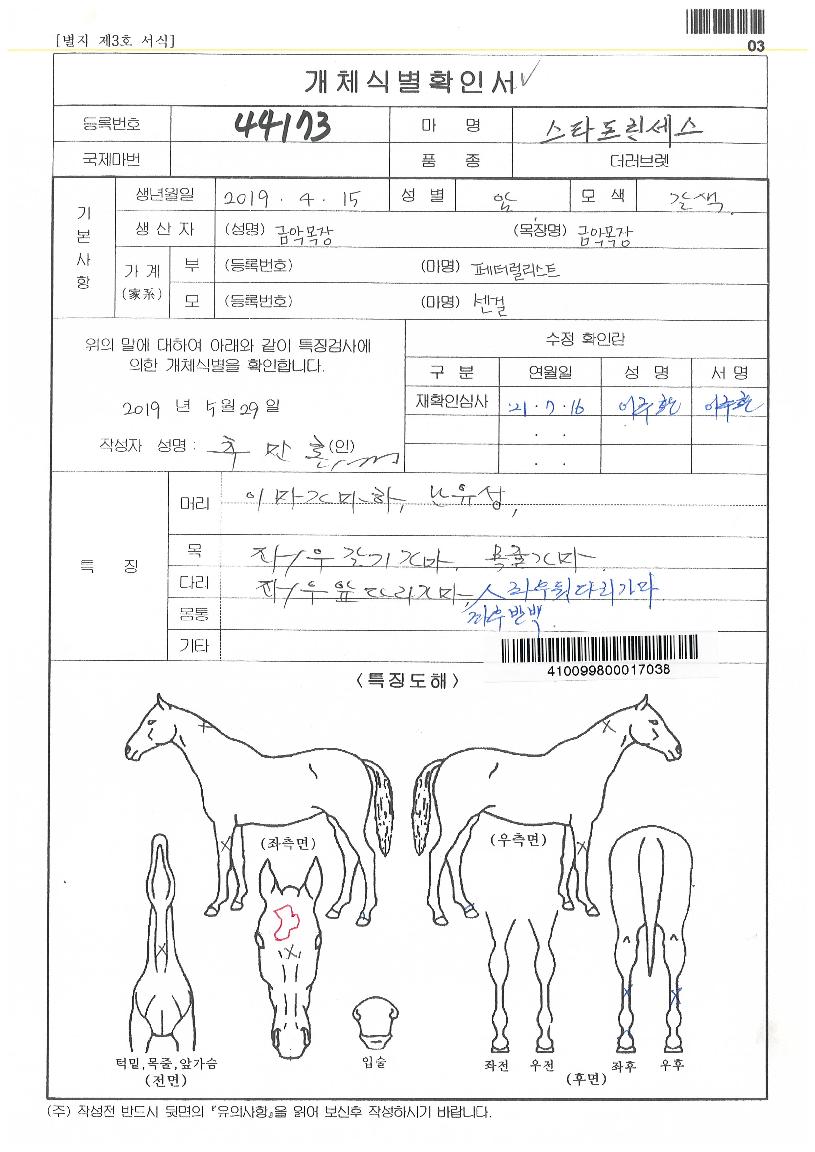 [별지 제3호 서식]
03
개체식별확인서
등록번호 44173 마 명 스타프린세스
국제마번 품 종 더러브렛
기본사항
생년월일 2019 . 4 . 15 성 별 암 모 색 갈색.
생 산 자 (성명) 금악목장 (목장명) 금악목장
가 계 (家系) 부 (등록번호) (마명) 페더럴리스트
모 (등록번호) (마명) 센걸
위의 말에 대하여 아래와 같이 특징검사에
의한 개체식별을 확인합니다.
2019 년 5월 29 일
작성자 성명 : (인)
수정 확인란
구 분 연월일 성 명 서 명
재확인심사 21 . 7 . 16
. .
. .
특 징
머리
목 좌/우 목줄가마.
다리 좌/우 앞다리가마, 좌우뒷다리가마
몸통
기타
410099800017038
<특징도해>
(좌측면) (우측면)
턱밑,목줄,앞가슴
(전면)
입술
좌전 우전 좌후 우후
(후면)
(주) 작성전 반드시 뒷면의 『유의사항』을 읽어 보신후 작성하시기 바랍니다.